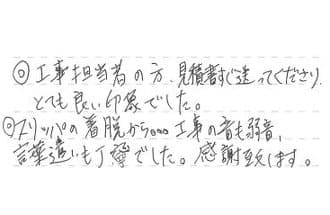 ◎工事担当者の方、見積書すぐ送ってくださり、
とても良い印象でした。
◎スリッパの着脱から○○○工事の音も弱音、
言葉遣いも丁寧でした。感謝致します。